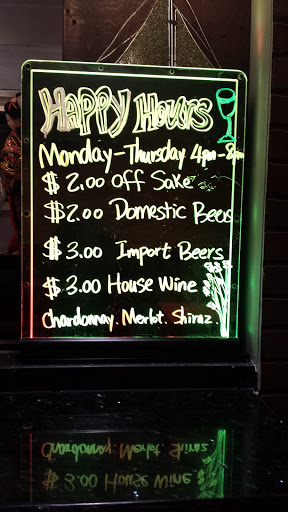 Happy Hours
Monday-Thursday 4pm-8pm
$2.00 Off Sake
$2.00 Domestic Beers
$3.00 Import Beers
$3.00 House Wine
Chardonnay. Merlot. Shiraz.